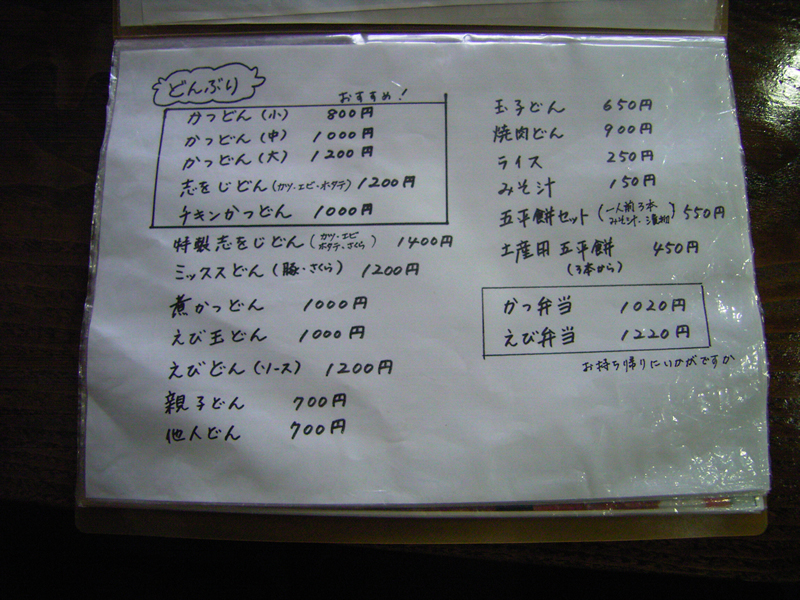 どんぶり
おすすめ!
かつどん(小) 800円
かつどん(中) 1000円
かつどん(大) 1200円
志をじどん(カツ・エビ・ホタテ) 1200円
チキンかつどん 1000円
特製志をじどん(カツ・エビ ホタテ・さくら) 1400円
ミックスどん(豚・さくら) 1200円
煮かつどん 1000円
えび玉どん 1000円
えびどん(ソース) 1200円
親子どん 700円
他人どん 700円
玉子どん 650円
焼肉どん 900円
ライス 250円
みそ汁 150円
五平餅セット(一人前3本 みそ汁・漬物) 550円
土産用 五平餅 450円
(3本から)
かつ弁当 1020円
えび弁当 1220円
お持ち帰りにいかがですか